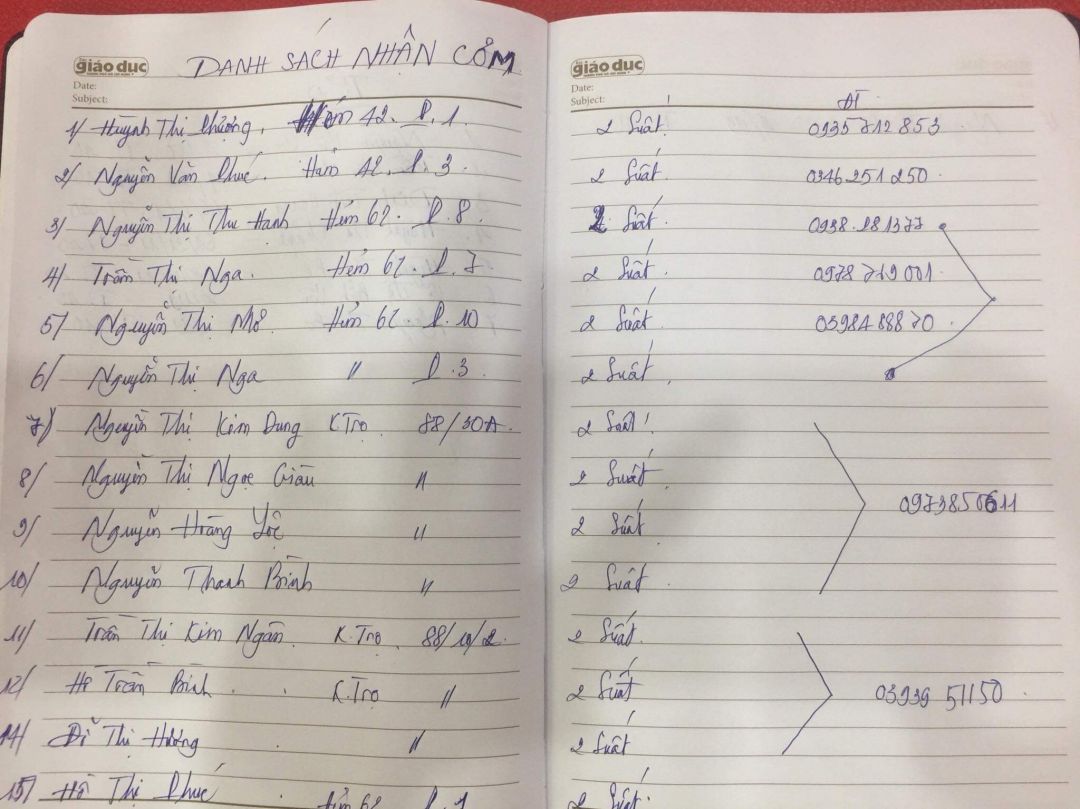 giáo dục
DANH SÁCH NHẬN CƠM
giáo dục
Date:
Subject:
Date:
Subject:
ĐT
1/ Huỳnh Thị Phượng. Hẻm 42. P. 1. 2 Suất. 0935712853
2/ Nguyễn Văn Phúc. Hẻm 42. P. 3. 2 Suất. 0346251250.
3/ Nguyễn Thị Thu Hanh Hẻm 62. P. 8. 2 Suất. 0938.281377
4/ Trần Thị Nga. Hẻm 62. P. 7 2 Suất. 0978719001.
5/ Nguyễn Thị Mơ. Hẻm 62. P. 10 2 Suất. 0398488870.
6/ Nguyễn Thị Nga " P. 3. 2 Suất.
7/ Nguyễn Thị Kim Dung K Trọ. 88/30A. 2 Suất.
8/ Nguyễn Thị Ngọc Giàu " 2 Suất.
0973850611
9/ Nguyễn Hoàng Lộc " 2 Suất.
10/ Nguyễn Thanh Bình " 2 Suất.
11/ Trần Thị Kim Ngân. K.Trọ. 88/10/2. 2 Suất.
12/ Hồ Trần Bình. K.Trọ " 2 Suất. 0393951150
14/ Thị Hương " 2 Suất.
15/ Hồ Thị Phúc Hẻm 62 P. 2 Suất.